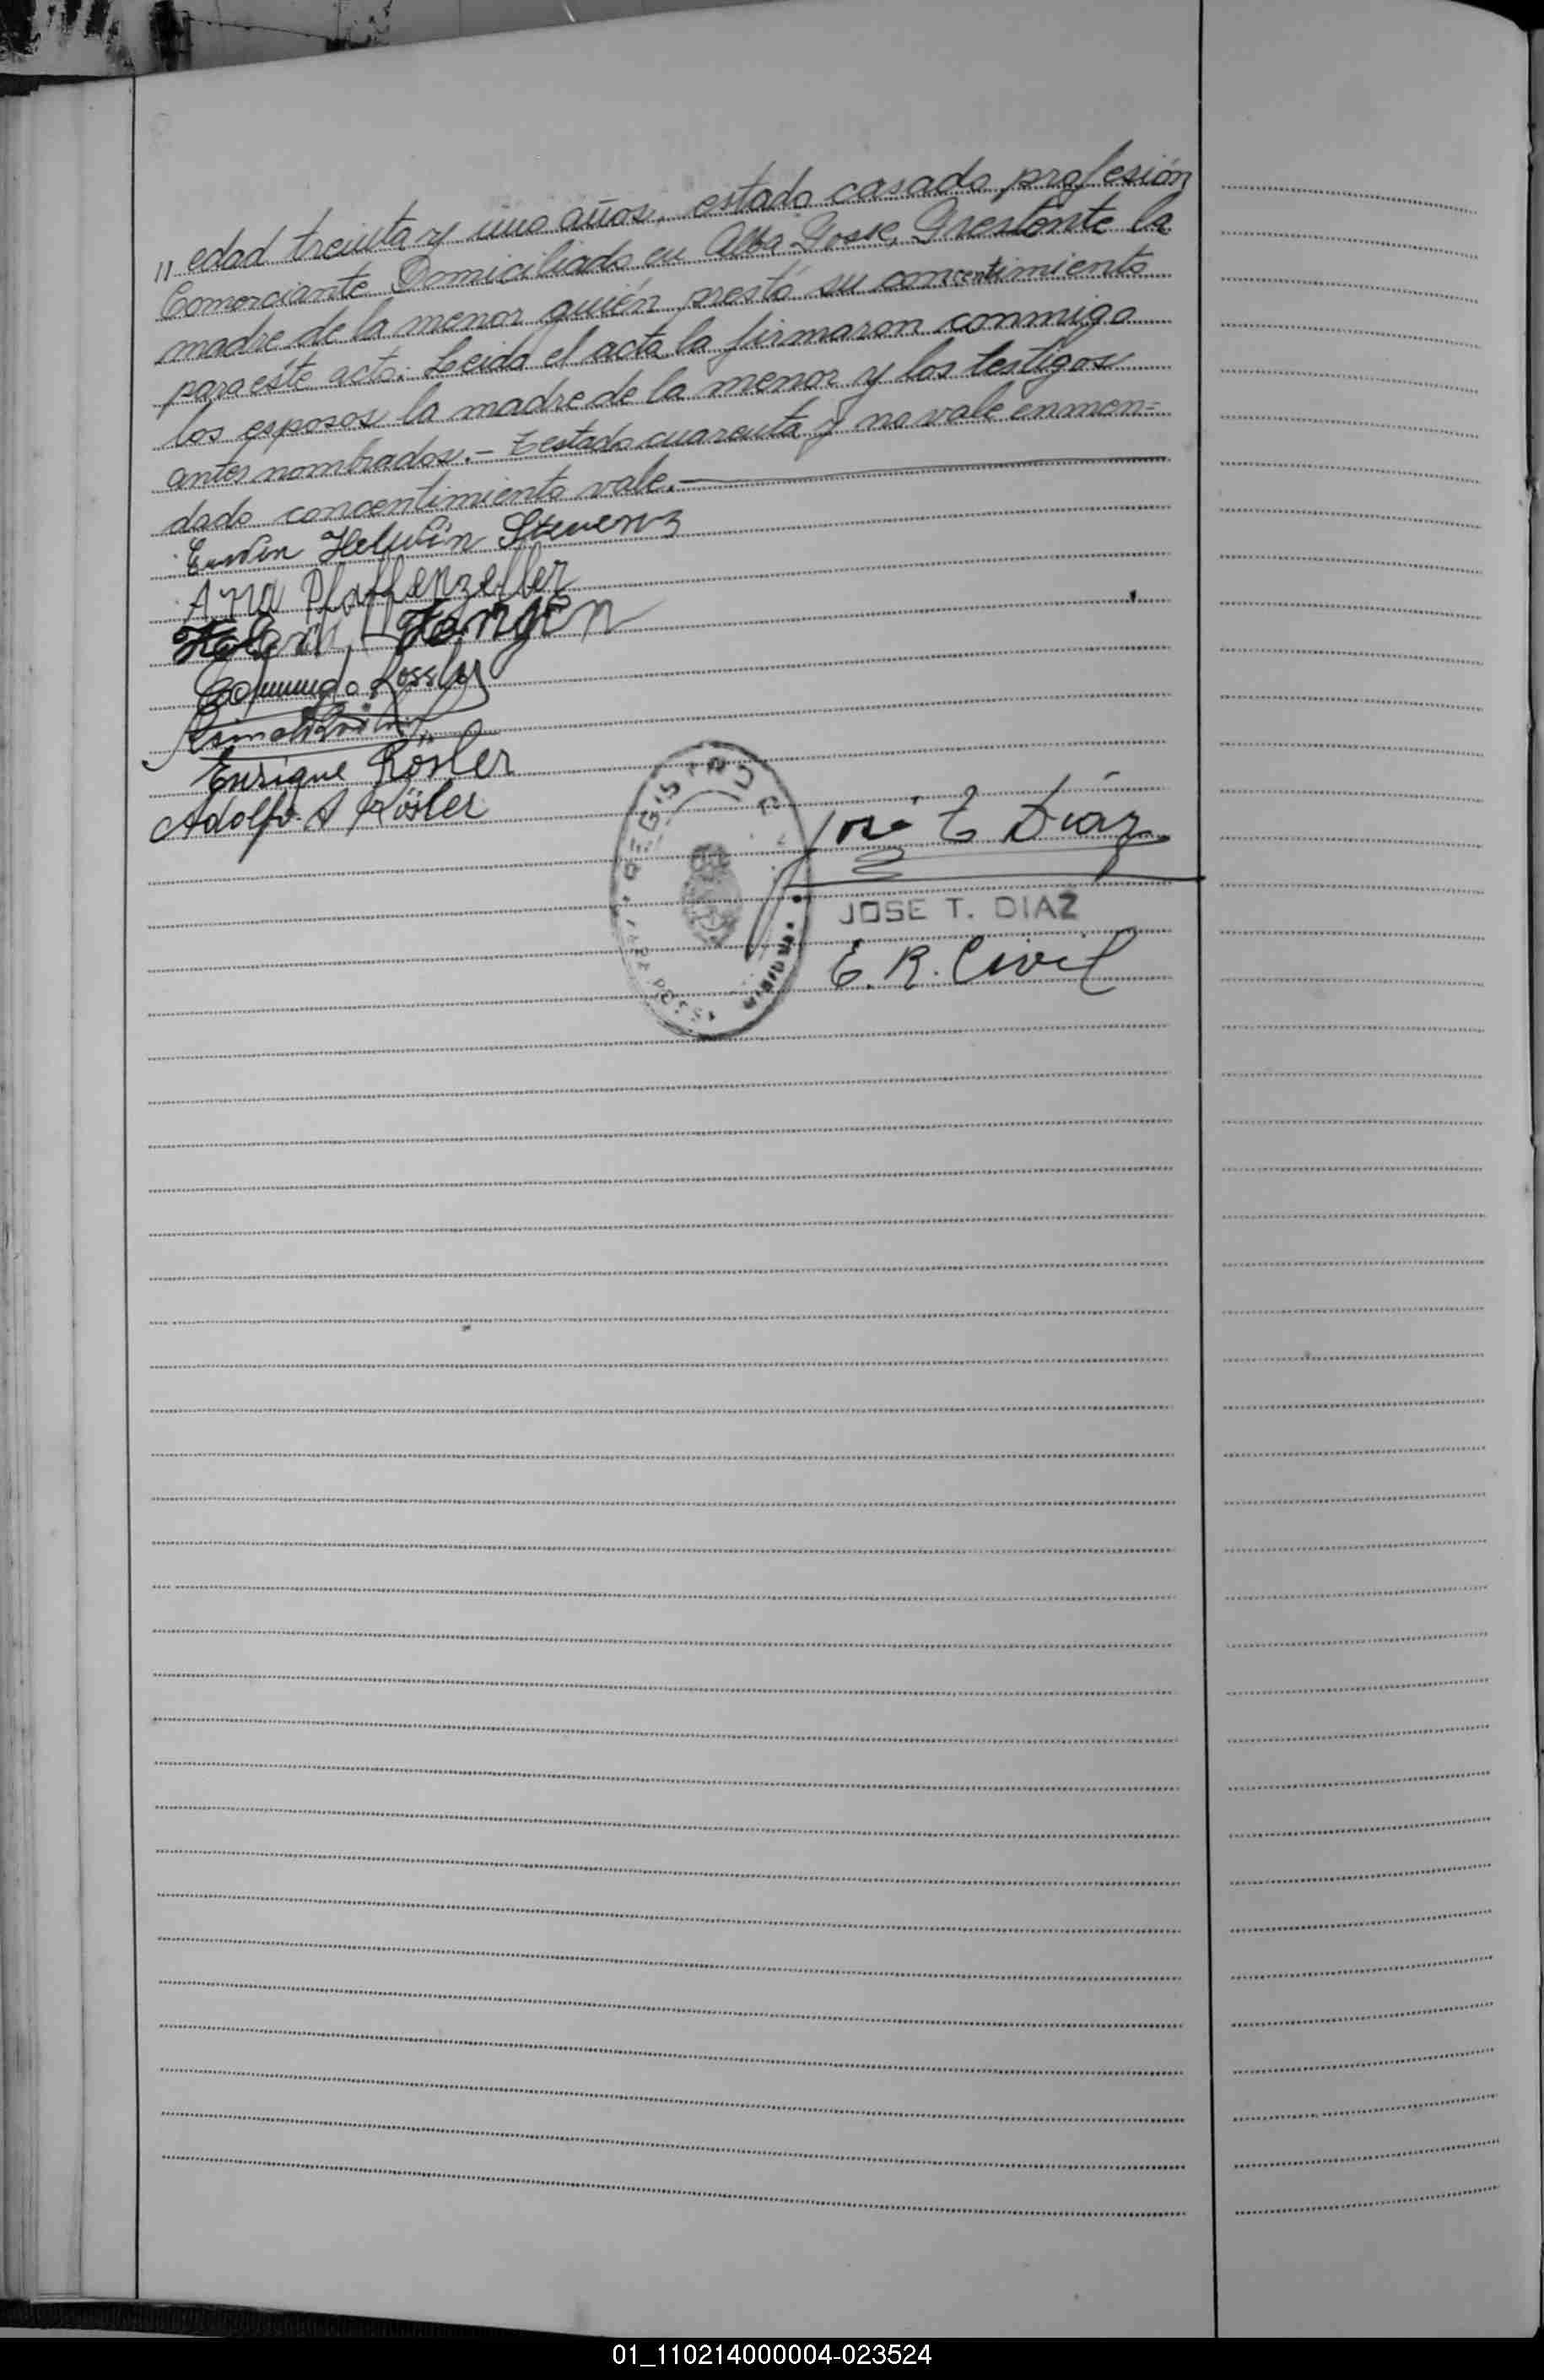 " edad treinta y uno años, estado casado, profesión
Comerciante Domiciliado en Alba Posse, Presente la
madre de la menor quién prestó su concentimiento
para éste acto. Leida el acta la firmaron conmigo
los esposos la madre de la menor y los testigos
antes nombrados.- Testado cuarenta y no vale enmen=
dado concentimiento vale.-
Erwin Helwin Stevenz
Ana Pfaffenzeller
Edmundo
Enrique Rösler
Adolfo A Rösler
REGISTRO
José T Díaz
JOSE T. DIAZ
E. R. Civil
01_110214000004-023524